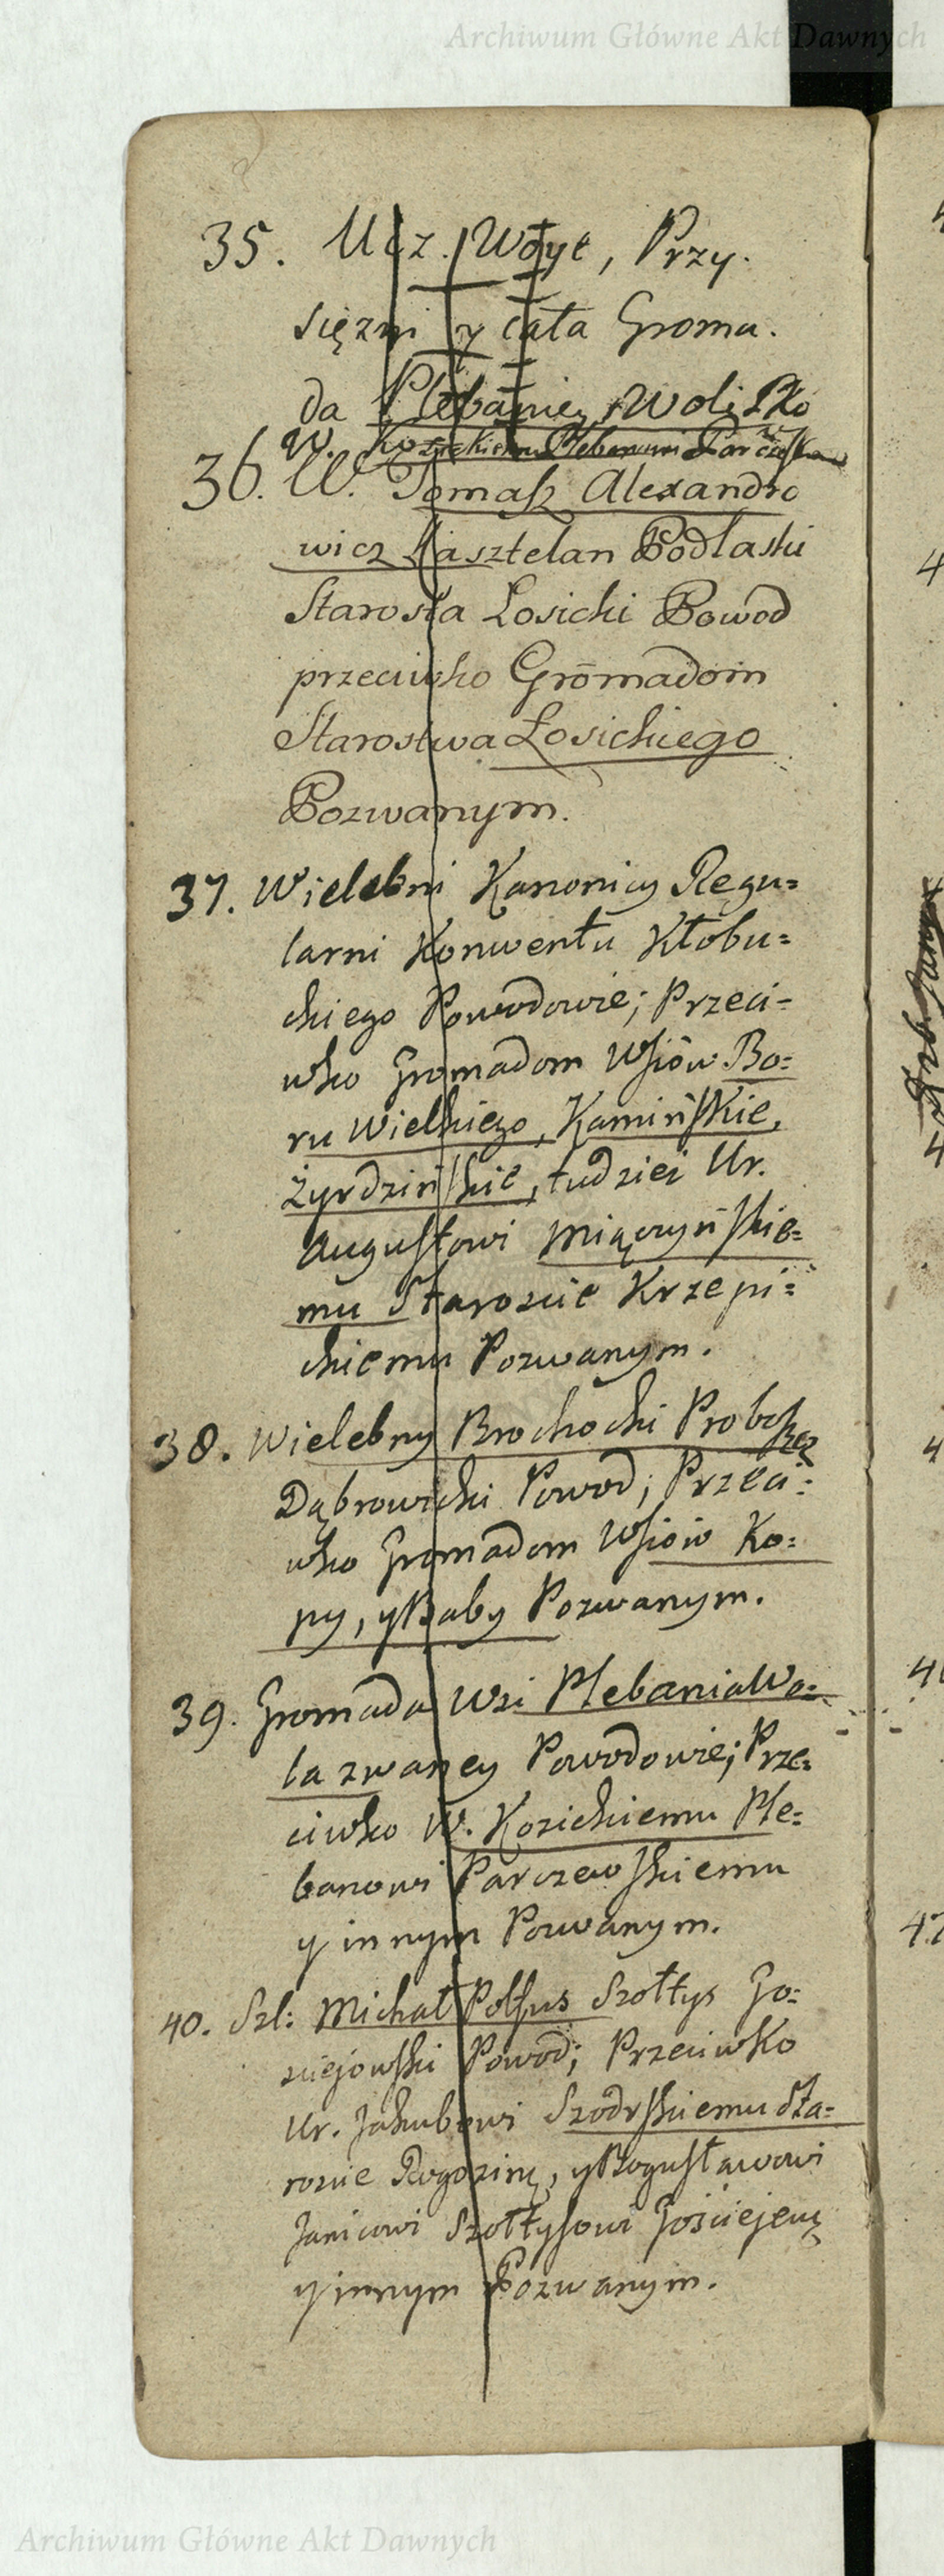 Archiwum Główne Akt Dawnych
35. Ucz. Woyt, Przy.
sięzni y cała Groma.
da Plebaniey Woli Pko
W. Kozickiemu Plebanowi
36. W. Tomasz Alexandro
wicz Kasztelan Podlaski
Starosta Losicki Powod
przeciwko Gromadom
Starostwa Łosickiego
Pozwanym.
37. Wielebni Kanonicy Regu=
larni Konwentu Kłobu=
ckiego Powodowie; Przeci=
wko Gromadom Wsiów Bo=
ru Wielkiego, Kamińskie,
Żyrdzińskie, tudziez Ur.
Augustowi Miączyńskie=
mu Staroscie Krzepi=
ckiemu Pozwanym.
38. Wielebny Brochocki Proboszcz
Dąbrowicki Powod; Przeci=
wko Gromadom Wsiów Ko=
py, y Baby Pozwanym.
39. Gromada Wsi Plebania Wo=
la zwaney Powodowie; Prze=
ciwko W. Kozickiemu Ple=
banowi Parczewskiemu
y innym Pozwanym.
40. Szl: Michał Polfus Szołtys Go=
sciejowski Powod; Przeciwko
Ur. Jakubowi Szodrskiemu Sta=
roscie Rogozinę, y Bogusławowi
Janicowi Szołtysowi
y innym Pozwanym.
Archiwum Główne Akt Dawnych